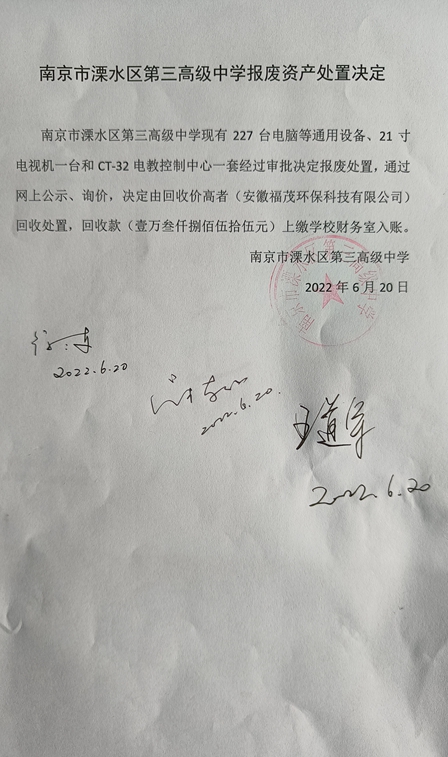 南京市溧水区第三高级中学报废资产处置决定
南京市溧水区第三高级中学现有 227 台电脑等通用设备、21 寸
电视机一台和 CT-32 电教控制中心一套经过审批决定报废处置，通过
网上公示、询价，决定由回收价高者（安徽福茂环保科技有限公司）
回收处置，回收款（壹万叁仟捌佰伍拾伍元）上缴学校财务室入账。
南京市溧水区第三高级中学
2022 年 6 月 20 日
南京市溧水区第三高级中学
2022.6.20
2022.6.20.
王道军
2022.6.20